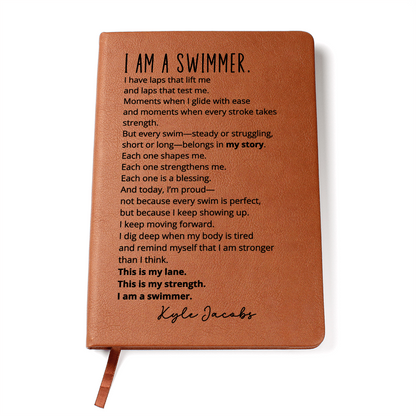 I AM A SWIMMER.
I have laps that lift me
and laps that test me.
Moments when I glide with ease
and moments when every stroke takes
strength.
But every swim—steady or struggling,
short or long—belongs in my story.
Each one shapes me.
Each one strengthens me.
Each one is a blessing.
And today, I'm proud—
not because every swim is perfect,
but because I keep showing up.
I keep moving forward.
I dig deep when my body is tired
and remind myself that I am stronger
than I think.
This is my lane.
This is my strength.
I am a swimmer.
Kyle Jacobs